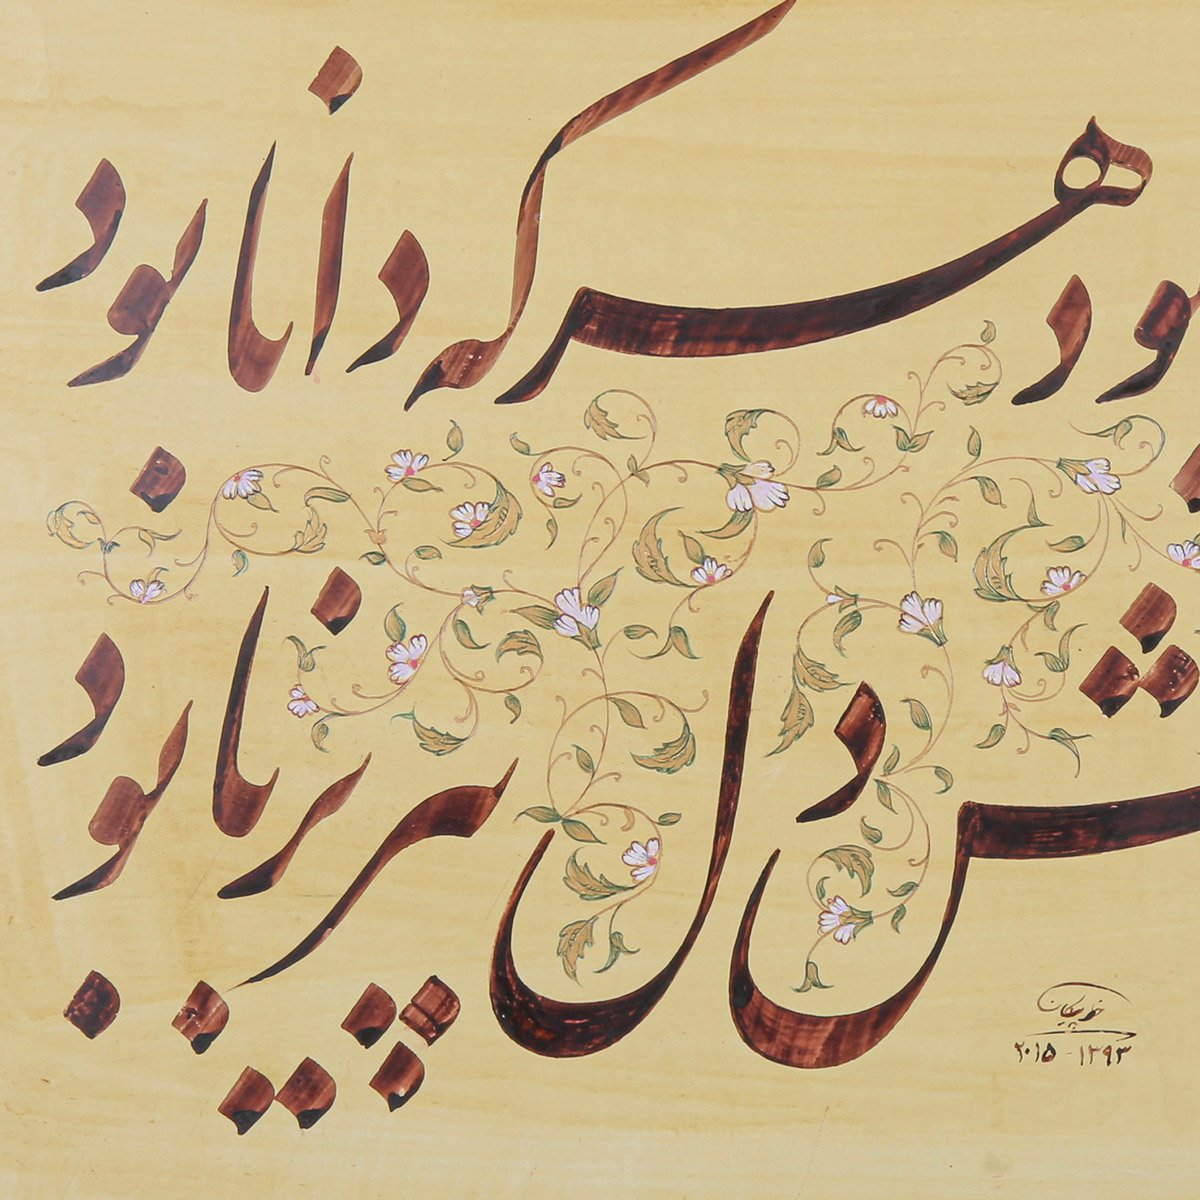 ود هر که دانا بود
ش دل پیر برنا بود
۱۳۹۳ - ۲۰۱۵